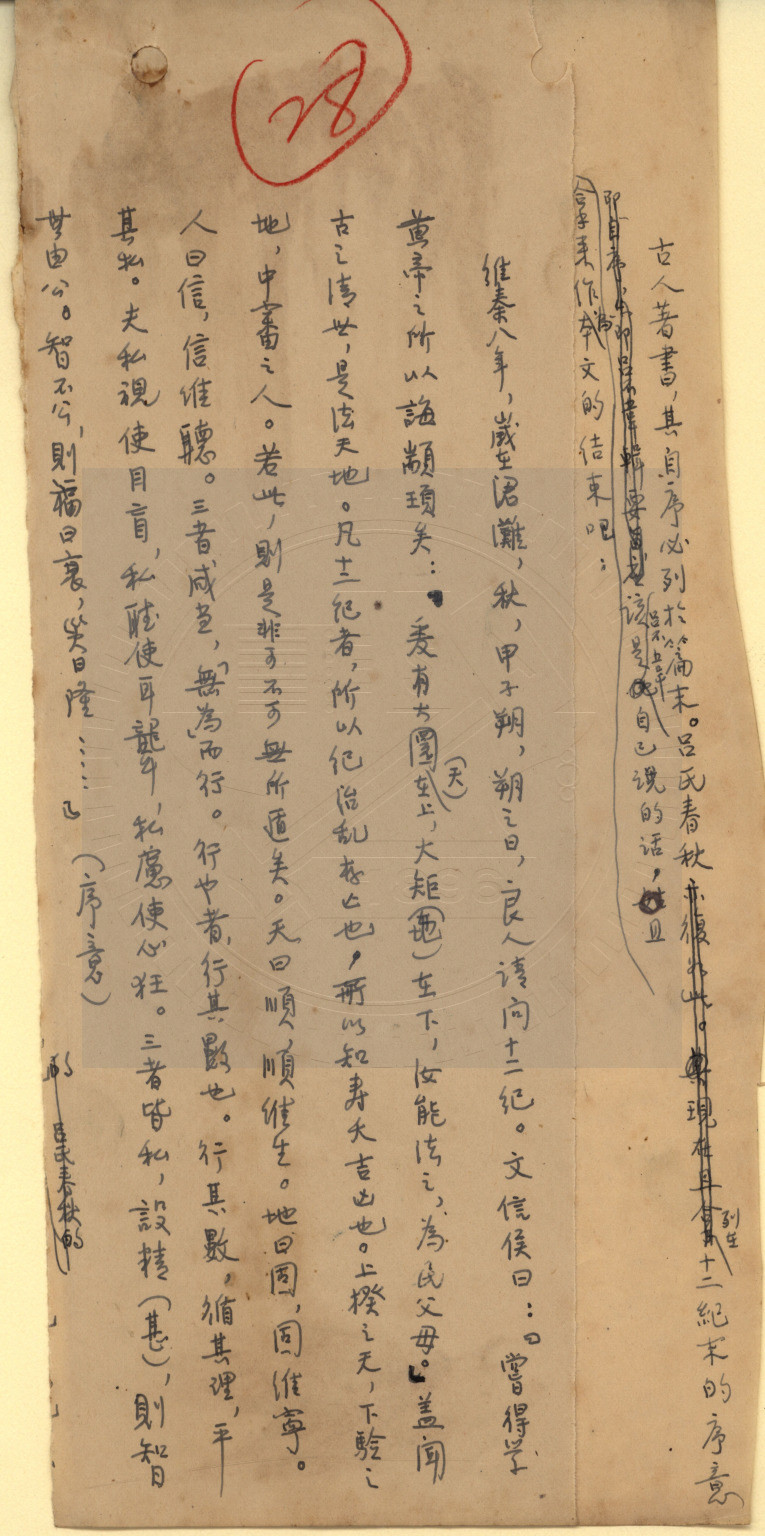 28
古人著書，其自序必列於篇末。呂氏春秋亦復如此。現在且 列在 十二紀末的序意
該是 呂不韋 自己說的話，且
拿來作為本文的結束吧：
維秦八年，歲在涒灘，秋，甲子朔，朔之日，良人請問十二紀。文信侯曰：「嘗得學
黃帝之所以誨顓頊矣：『爰有大圜（天）在上，大矩（地）在下，汝能法之，為民父母。』蓋聞
古之清世，是法天地。凡十二紀者，所以紀治亂存亡也，所以知壽夭吉凶也。上揆之天，下驗之
地，中審之人。若此，則是非可不可無所遁矣。天曰順，順維生。地曰固，固維寧。
人曰信，信維聽。三者咸當，「無為」而行。行也者，行其數也。行其數，循其理，平
其私。夫私視使目盲，私聽使耳聾，私慮使心狂。三者皆私，設精（甚），則智
無由公。智不公，則福日衰，災日隆……」（序意）
的
呂氏春秋的